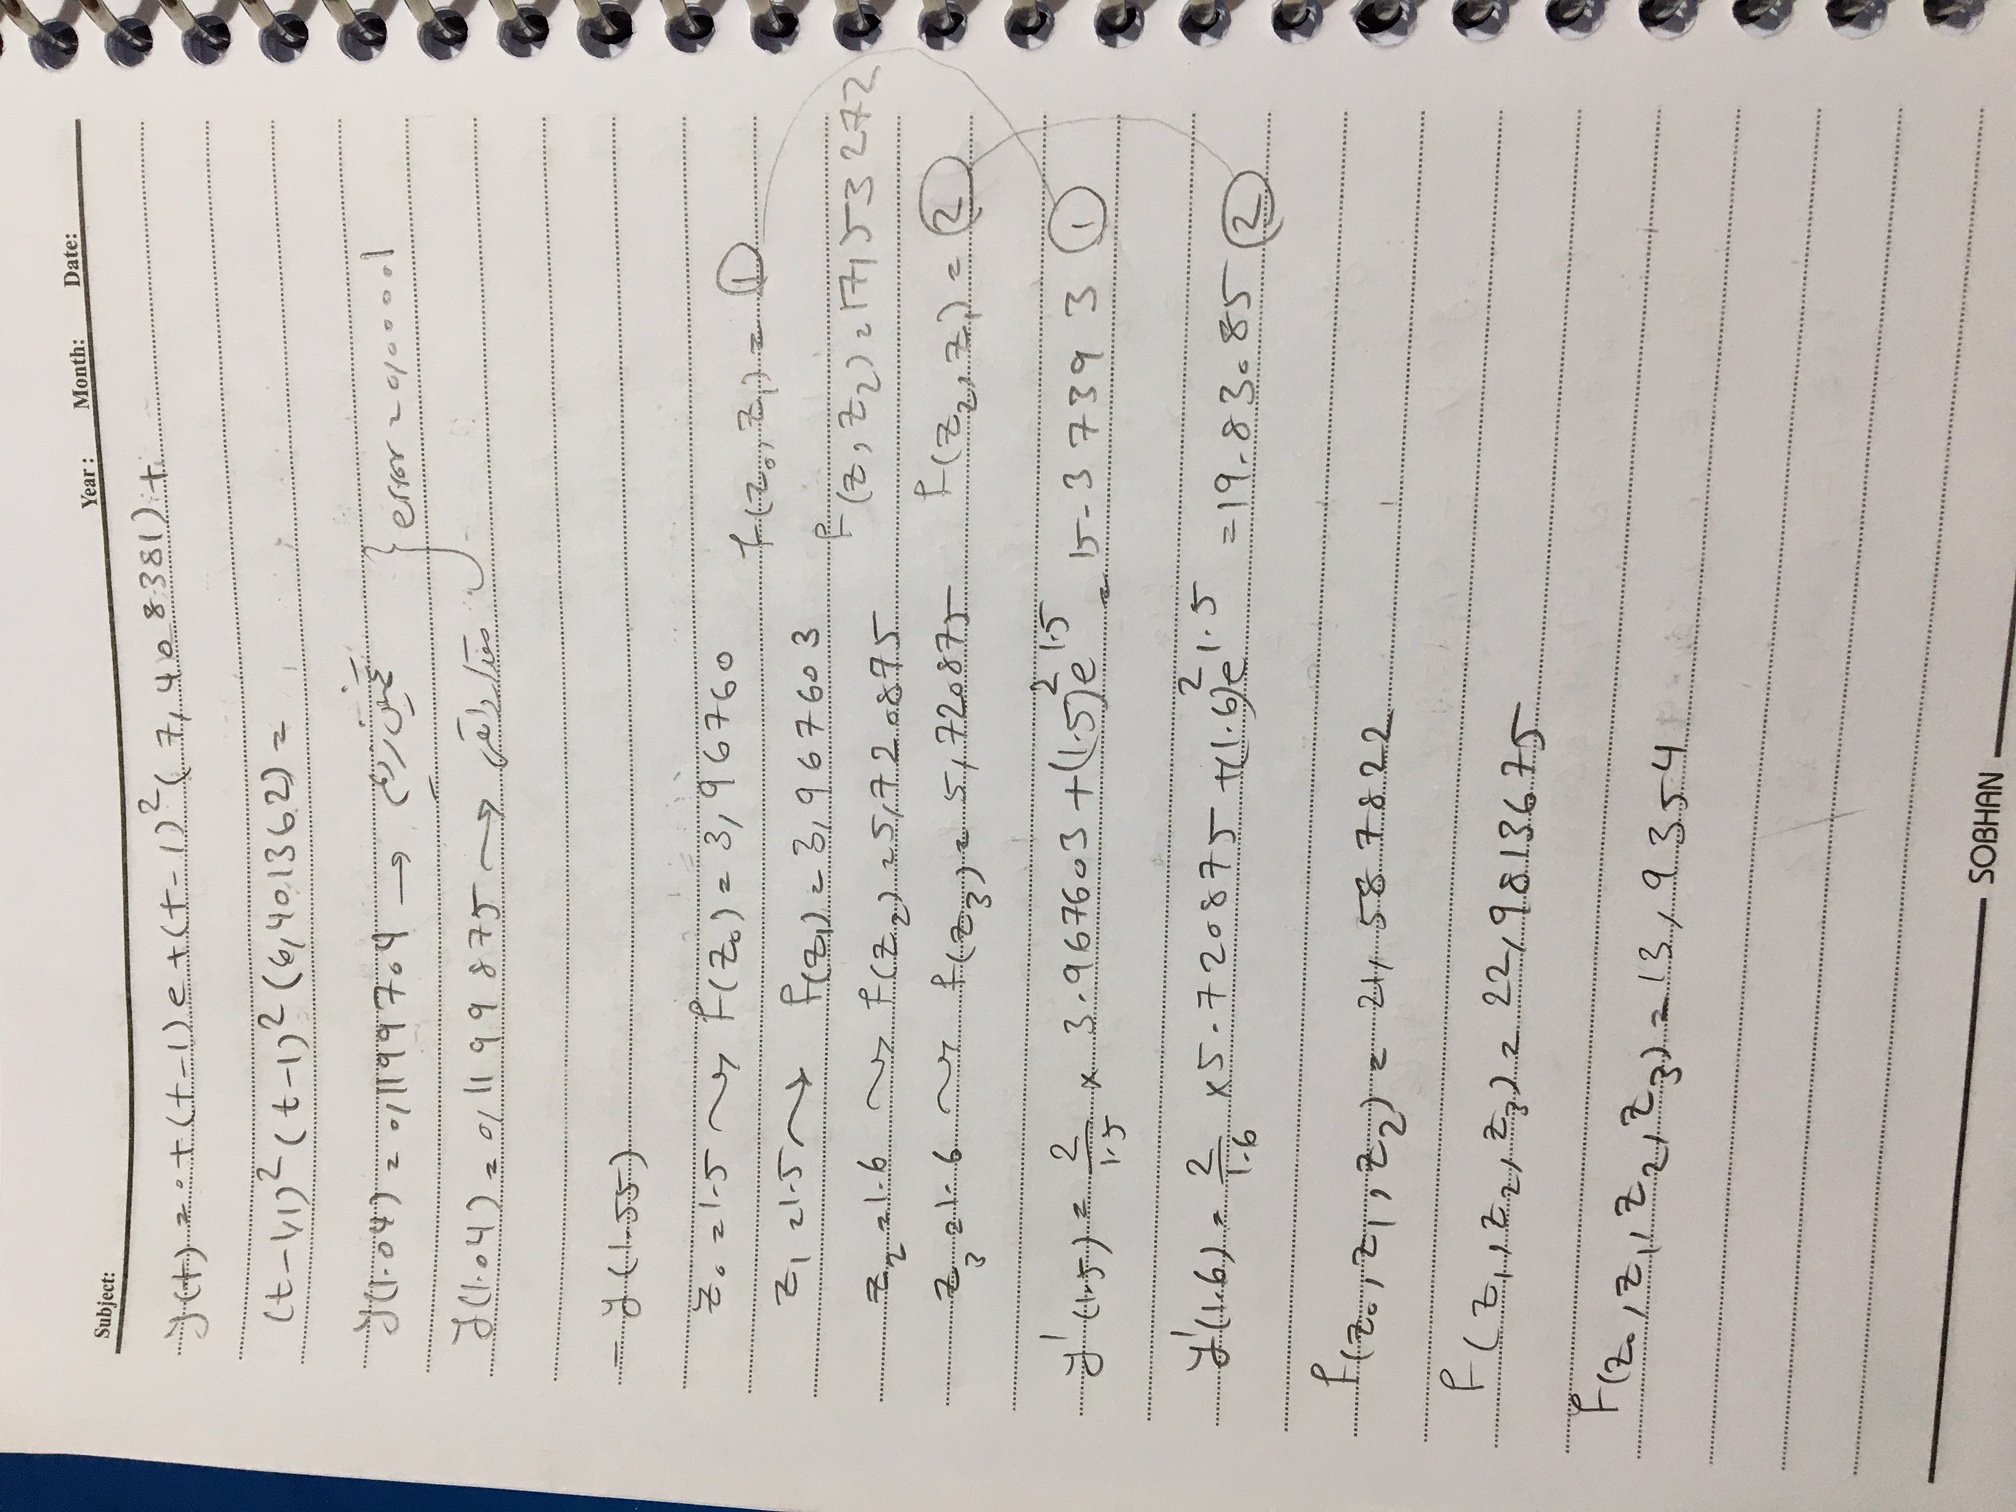 Subject: Year: Month: Date:
y(t) = 0 + (t-1)e + (t-1)²(7,408381) +
(t-1,1)²(t-1)²(6,401362) =
y(1.04) = 0,1199704 → تخمین زدن
y(1.04) = 0,1199875 → مقدار واقعی } error = 0,00001
- y(1.55)
z₀ = 1.5 → f(z₀) = 3,96760 f(z₀, z₁) = ①
z₁ = 1.5 → f(z₁) = 3,967603 f(z, z₂) = 17,53272
z₂ = 1.6 → f(z₂) = 5,720875 f(z₂, z₁) = ②
z₃ = 1.6 → f(z₃) = 5,720875
y'(1.5) = 2/1.5 × 3.967603 + (1.5)²e^1.5 = 15.37393 ①
y'(1.6) = 2/1.6 × 5.720875 + (1.6)²e^1.5 = 19.83085 ②
f(z₀, z₁, z₂) = 21,587822
f(z₁, z₂, z₃) = 22,9813675
f(z₀, z₁, z₂, z₃) = 13,9354
SOBHAN